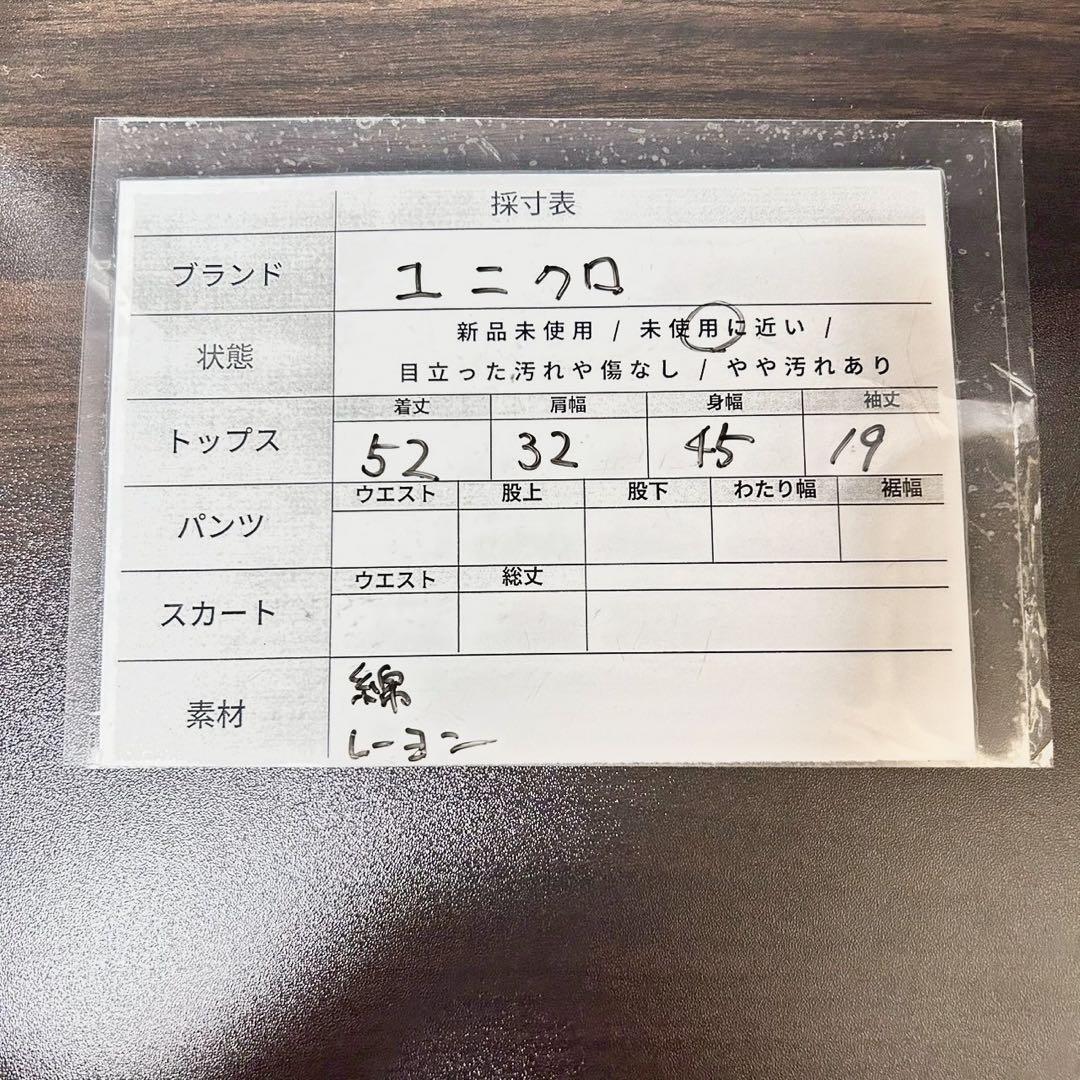 採寸表
ブランド ユニクロ
状態 新品未使用 / 未使用に近い /
目立った汚れや傷なし / やや汚れあり
トップス 着丈 肩幅 身幅 袖丈
52 32 45 19
パンツ ウエスト 股上 股下 わたり幅 裾幅
スカート ウエスト 総丈
素材 綿
レーヨン